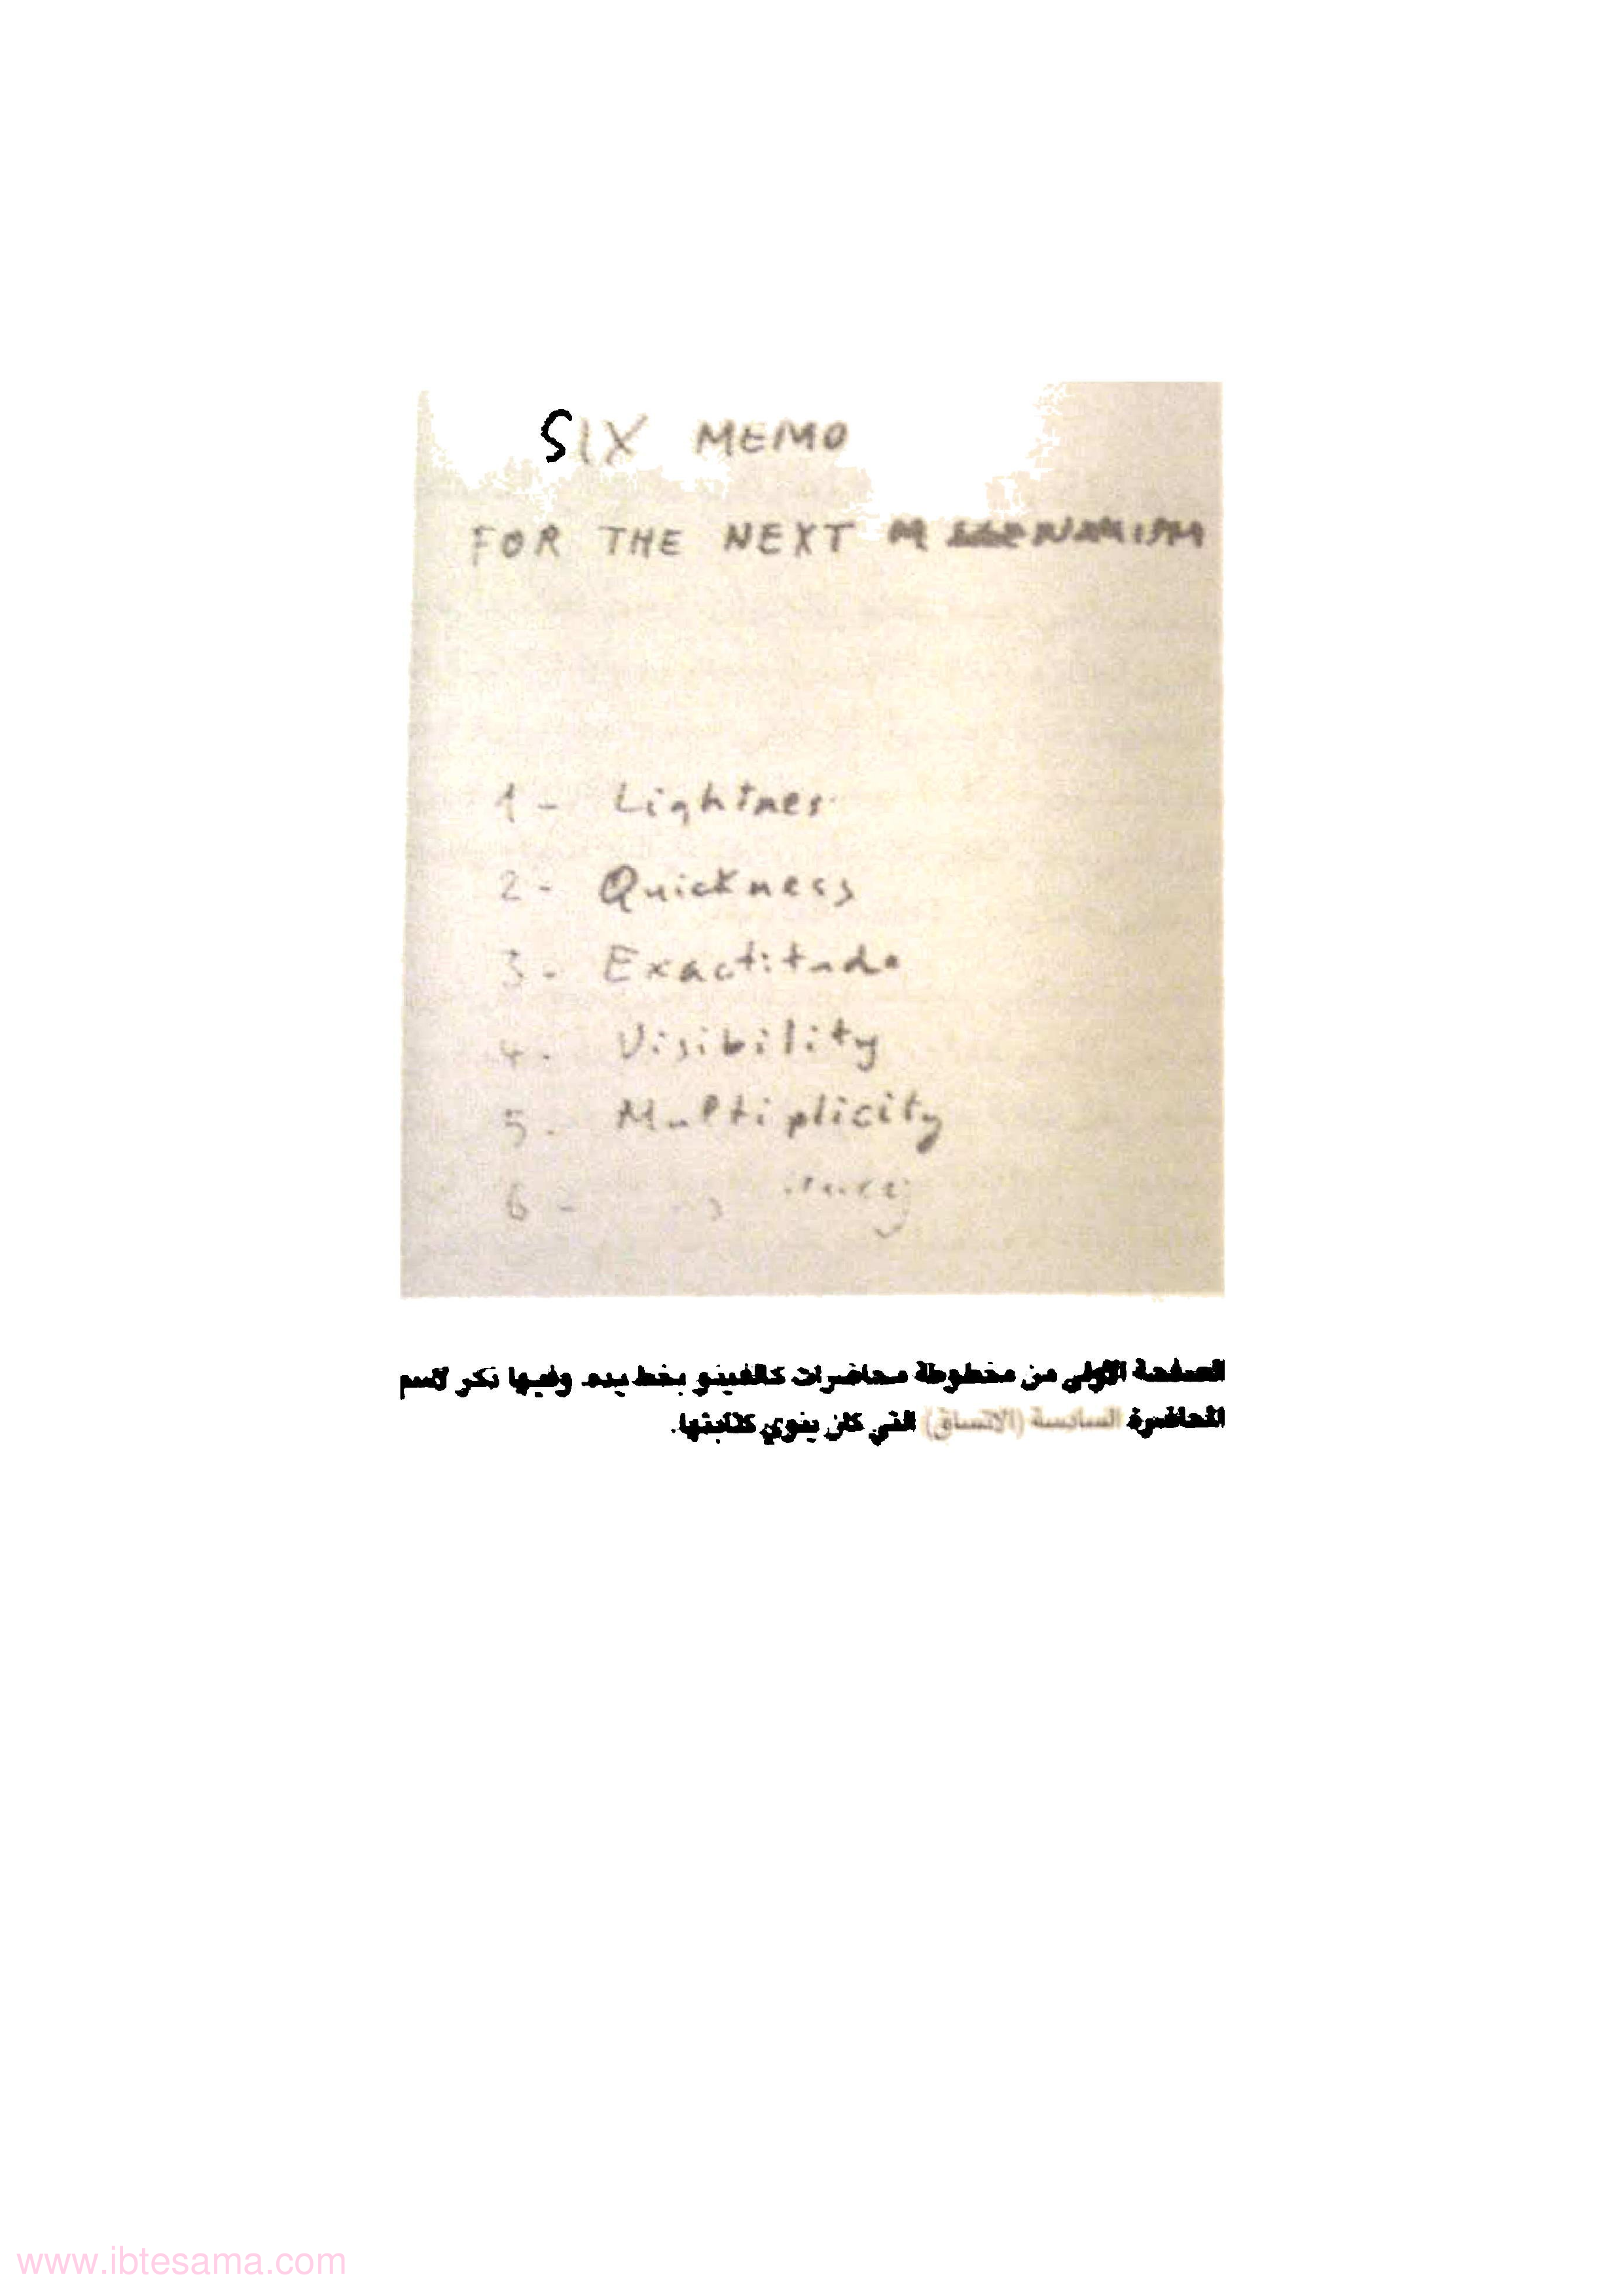 SIX MEMO
FOR THE NEXT
1 - Lightnes
2 - Quickness
3 - Exactitude
4 - Visibility
5 - Multiplicity
6 -
الصفحة الأولى من مخطوطة محاضرات كالفينو بخط يده. وفيها ذكر لاسم
المحاضرة السادسة (الاتساق) التي كان ينوي كتابتها.
www.ibtesama.com